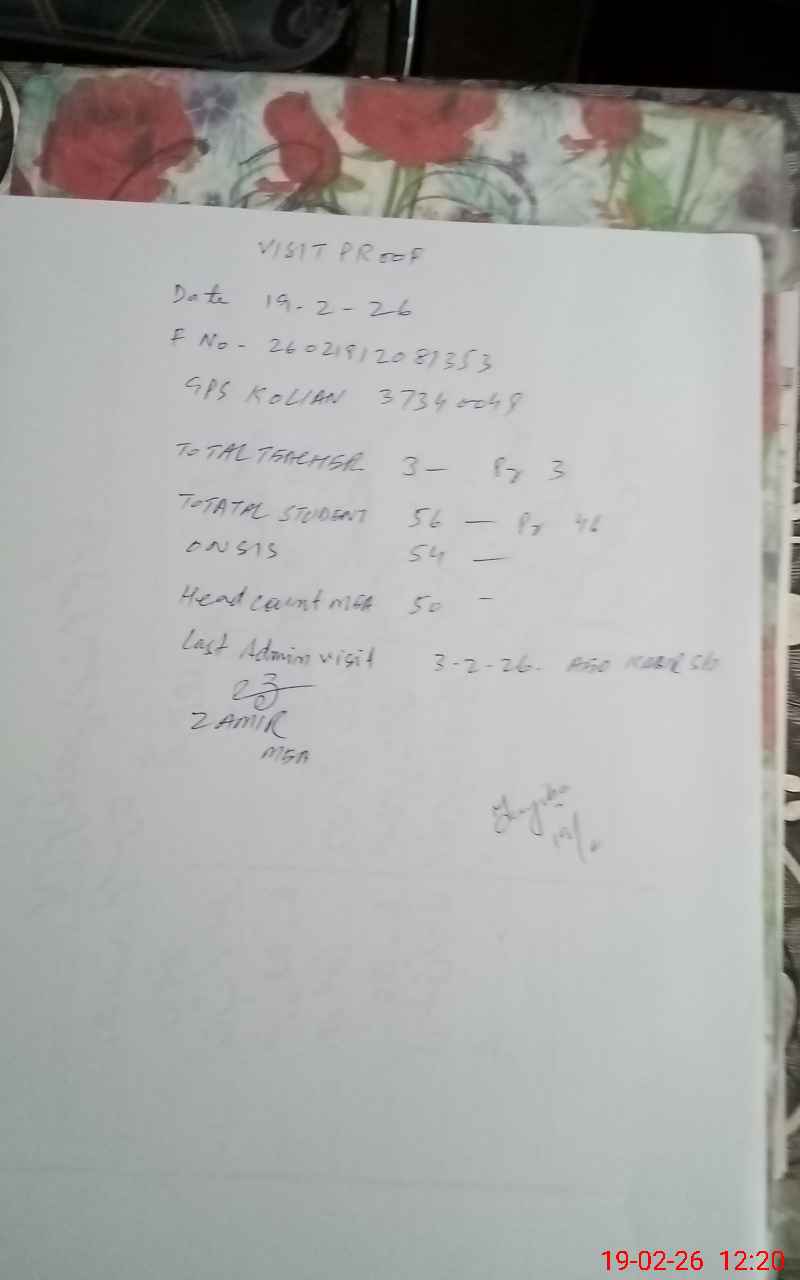 VISIT PROOF
Date 19-2-26
F No - 26021912081353
GPS KOLIAN 37340048
TOTAL TEACHER 3 — Pr 3
TOTATAL STUDENT 56 — Pr 46
ON SIS 54 —
Head count MEA 50 -
Last Admin visit 3-2-26. AEO KABIR Sb
ZAMIR
MEA
19-02-26 12:20